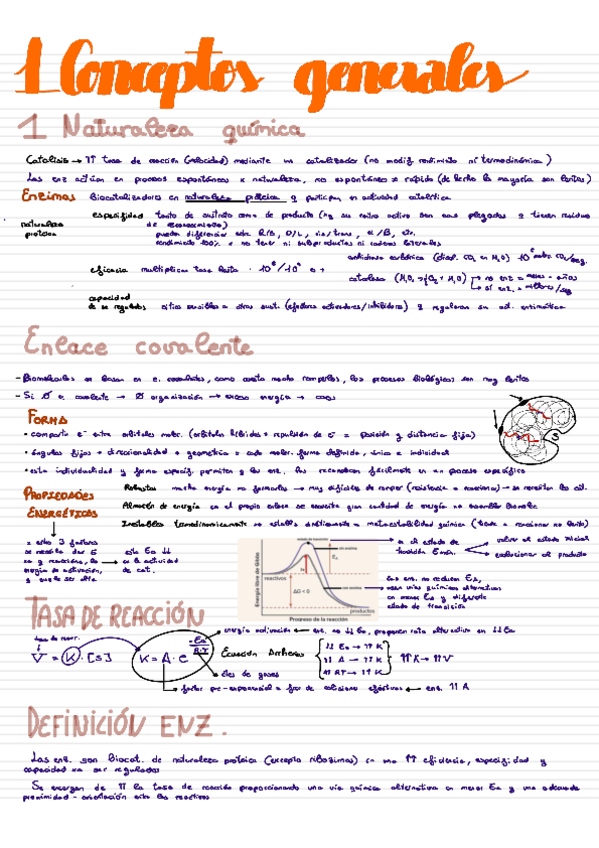 1 Conceptos generales
1 Naturaleza química
Catálisis → ↑↑ tasa de reacción (velocidad) mediante un catalizador (no modif. rendimiento ni termodinámica)
Las enz actúan en procesos espontáneos x naturaleza, no espontáneos ≠ rápido (de hecho la mayoría son lentos)
Enzimas Biocatalizadores en naturaleza proteica y participan en actividad catalítica
naturaleza proteica
especifidad tanto de sustrato como de producto
de reconocimiento)
pueden diferenciar entre R/S, D/L, cis/trans, α/β, etc.
rendimiento 100% x no tener ni subproductos ni cadenas laterales
anhidrasa carbónica
eficacia multiplican tasa hasta
catalasa
no enz = meses - años
sí enz. = millones/seg
capacidad de ser regulados
sitios sensibles = otros sust. (efectores activadores/inhibidores) y regularan su act. enzimática
Enlace covalente
- Biomoléculas se basan en e. covalentes, como cuesta mucho romperlos, los procesos biológicos son muy lentos
- Si Ø e. covalente → Ø organización → exceso energía → caos
FORMA
• comparte e⁻ entre orbitales molec. (orbitales híbridos + repulsión de e⁻ = posición y distancia fijas)
• ángulos fijos + direccionalidad + geometría = cada molec. forma definida, única e individual
• esta individualidad y forma especif. permiten q las enz. las reconozcan fácilmente en un proceso específico
S
PROPIEDADES ENERGÉTICAS
Robustos mucha energía no formarlos → muy difíciles de romper (resistencia a reaccionar) → se necesitan las cat.
Almacén de energía en el propio enlace se concentra gran cantidad de energía
Inestables termodinámicamente → metaestabilidad química (tiende a reaccionar no lento)
estos 3 factores
energía de activación,
es la actividad de cat.
Energía libre de Gibbs
estado de transición
reactivos
ΔG < 0
Eₐ
productos
Progreso de la reacción
en el estado de transición
volver al estado inicial
evolucionar al producto
Las enz. no reducen Ea,
usan vías químicas alternativas
en menos Ea y diferente
estado de transición
TASA DE REACCIÓN
V = K · [S]
K = A · e
-Ea
R·T
energía activación ← enz. no ↓↓ Ea, proponen ruta alternativa en ↓↓ Ea
Ecuación Arrhenius
↓↓ Ea → ↑↑ K
↑↑ A → ↑↑ K
↑↑ RT → ↑↑ K
↑↑ K → ↑↑ V
ctes de gases
factor pre-exponencial = fac de colisiones efectivas ← enz. ↑↑ A
DEFINICIÓN ENZ.
Las enz. son biocat. de naturaleza proteica (excepto ribozimas) en una ↑↑ eficiencia, especifidad y
capacidad xa ser regulados
Se encargan de ↑↑ la tasa de reacción proporcionando una vía química alternativa en menor Ea y una adecuada
proximidad - orientación entre los reactivos